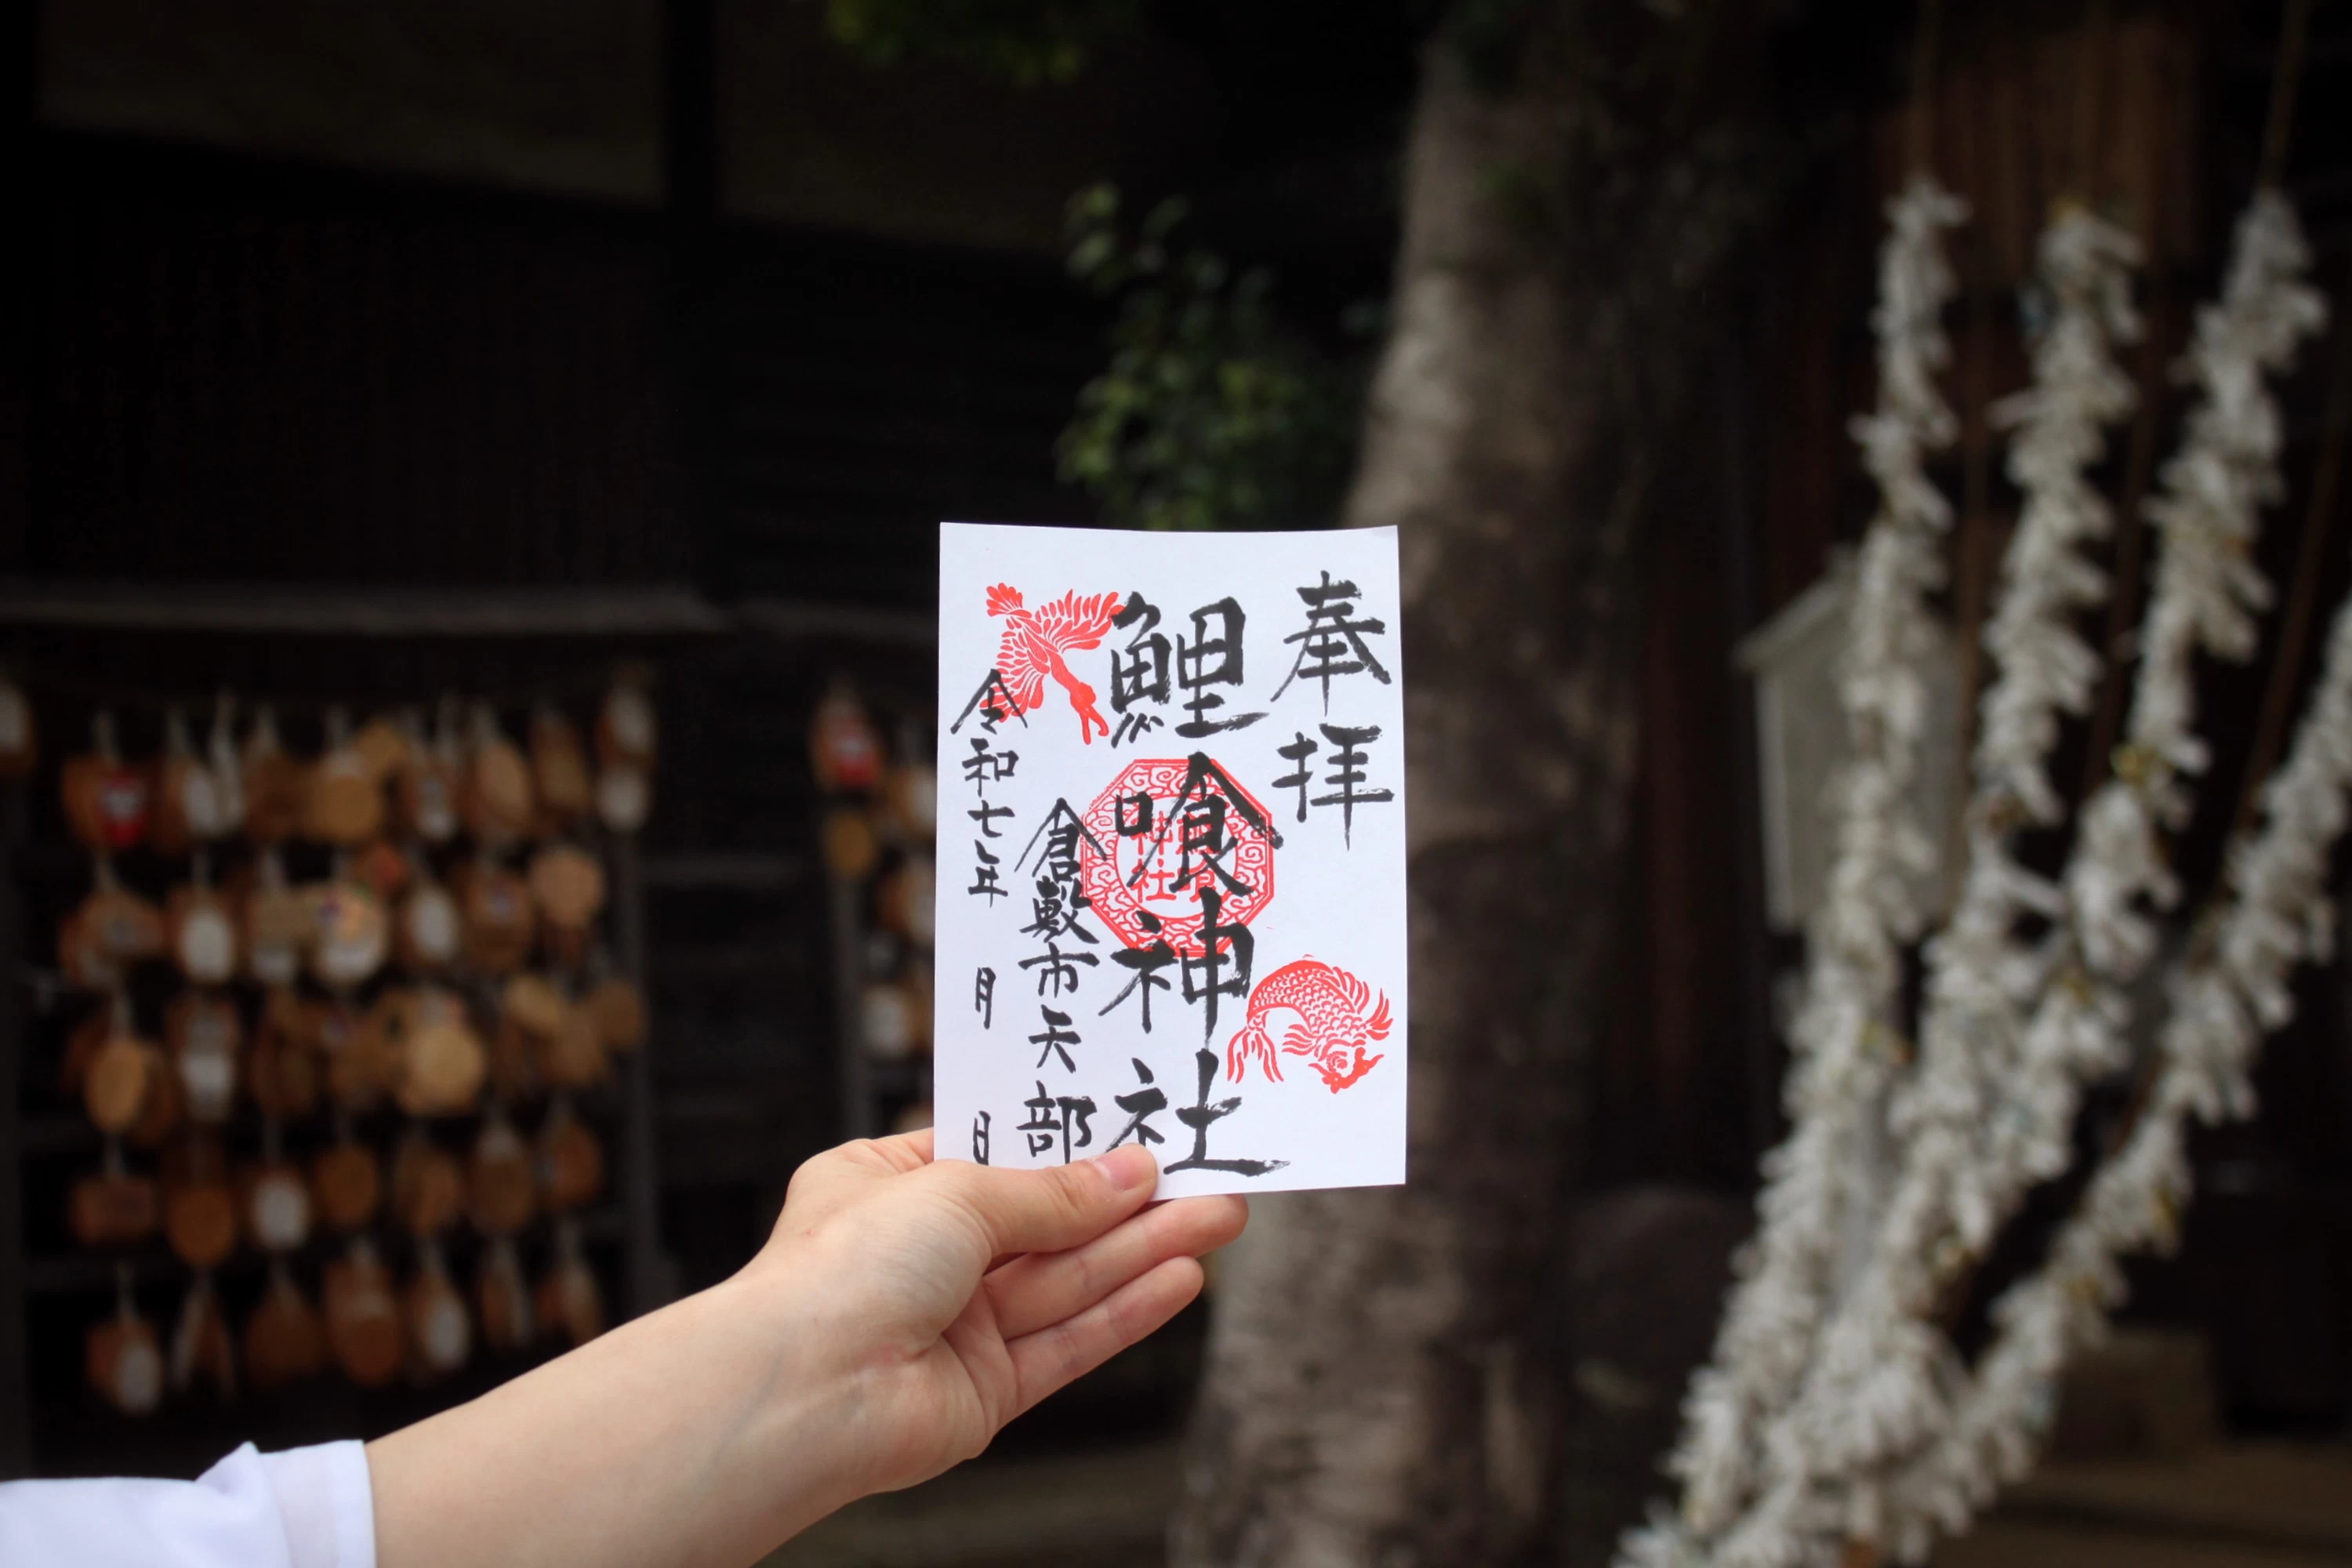 奉拝
鯉喰神社
倉敷市矢部
令和七年 月 日